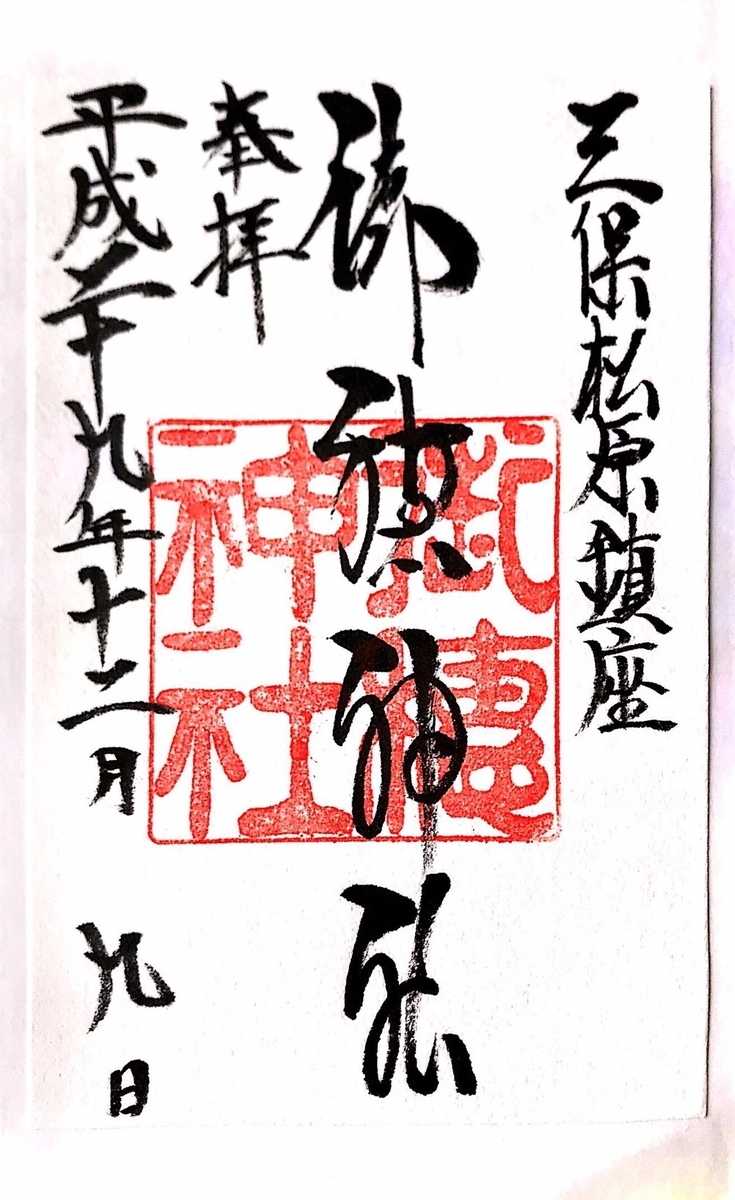 三保松原鎮座
御穂神社
奉拝
平成二十九年十二月 九日
御穗
神社